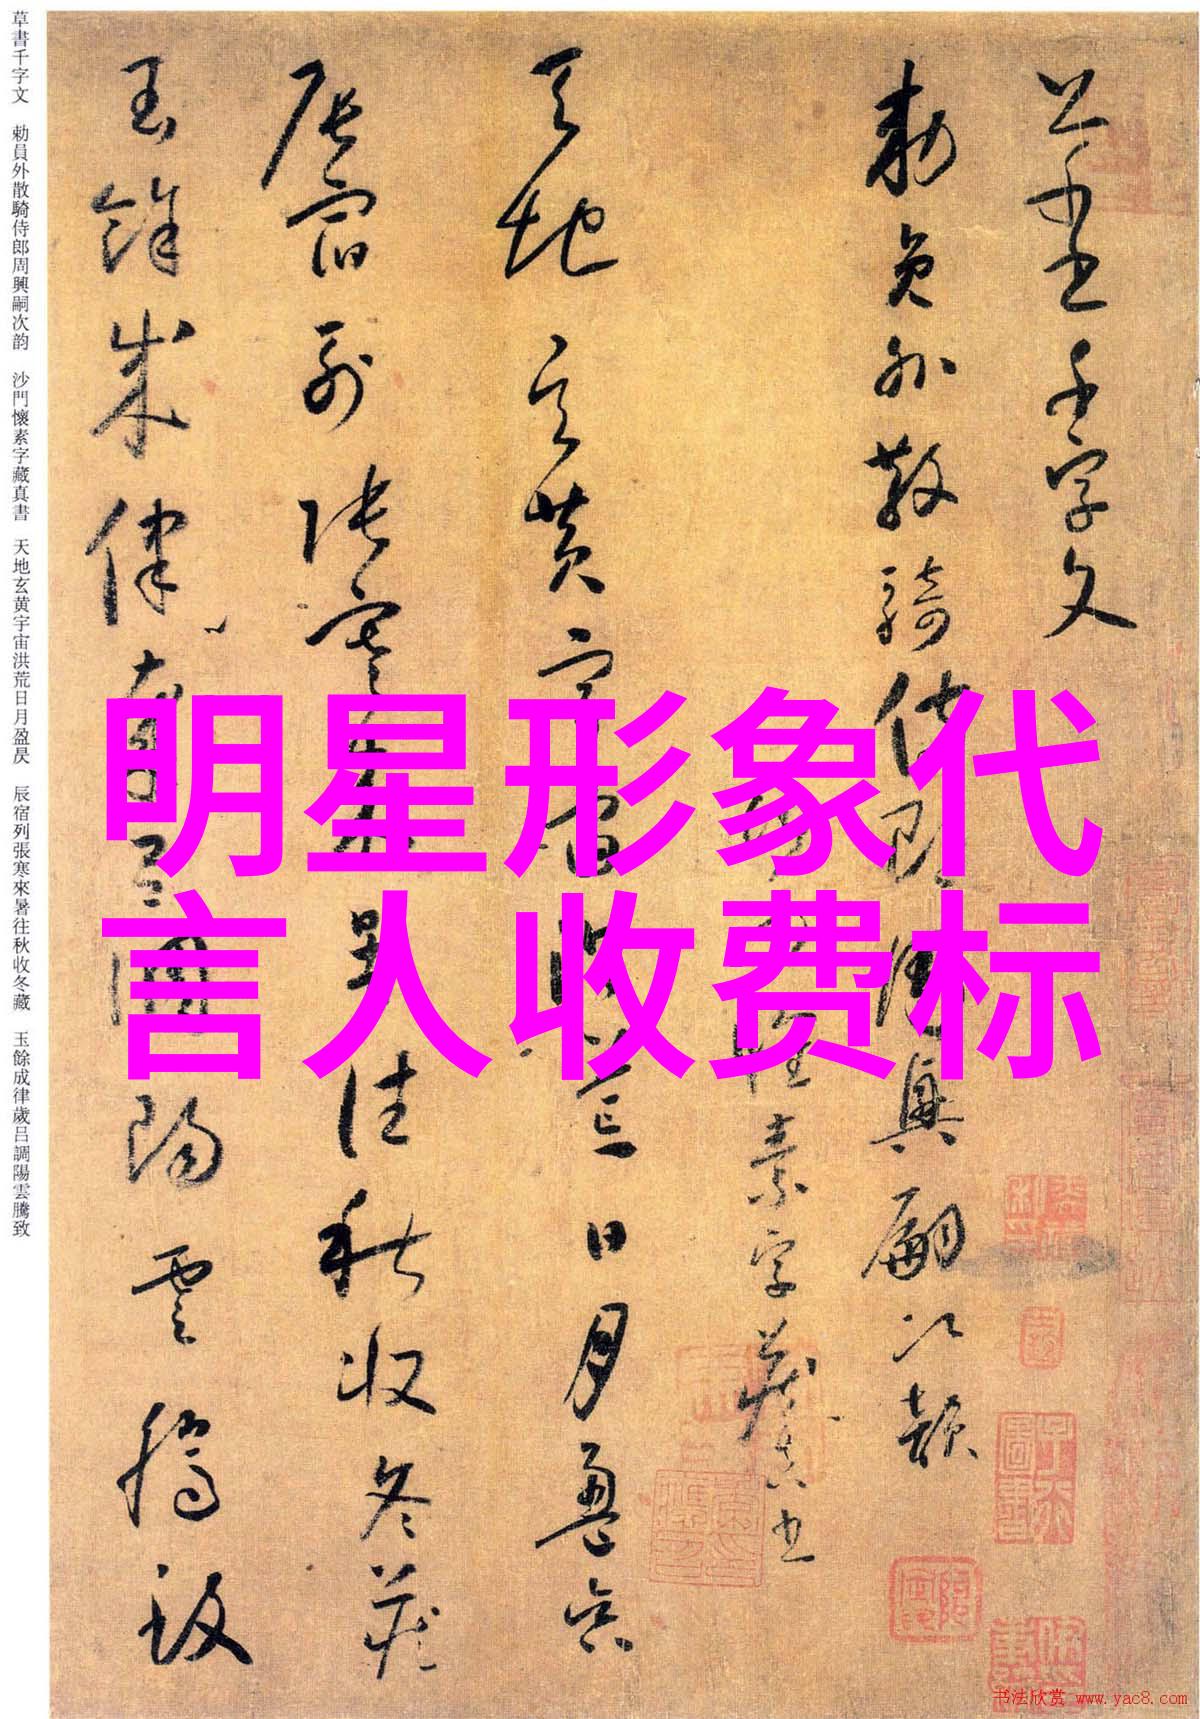 草書千字文　勅員外散騎侍郎周興嗣次韵　沙門懷素字藏真書　天地玄黄宇宙洪荒日月盈昃　辰宿列張寒來暑往秋收冬藏　玉餘成律歲吕調陽雲騰致
草書千字文
勅員外散騎侍郎周興嗣次韻
沙門懷素字藏真書
天地玄黄宇宙洪荒日月盈昃
辰宿列張寒來暑往秋收冬藏
玉餘成律歲吕調陽雲騰致
明星形象代
言人收费标
书法欣赏 www.yac8.com